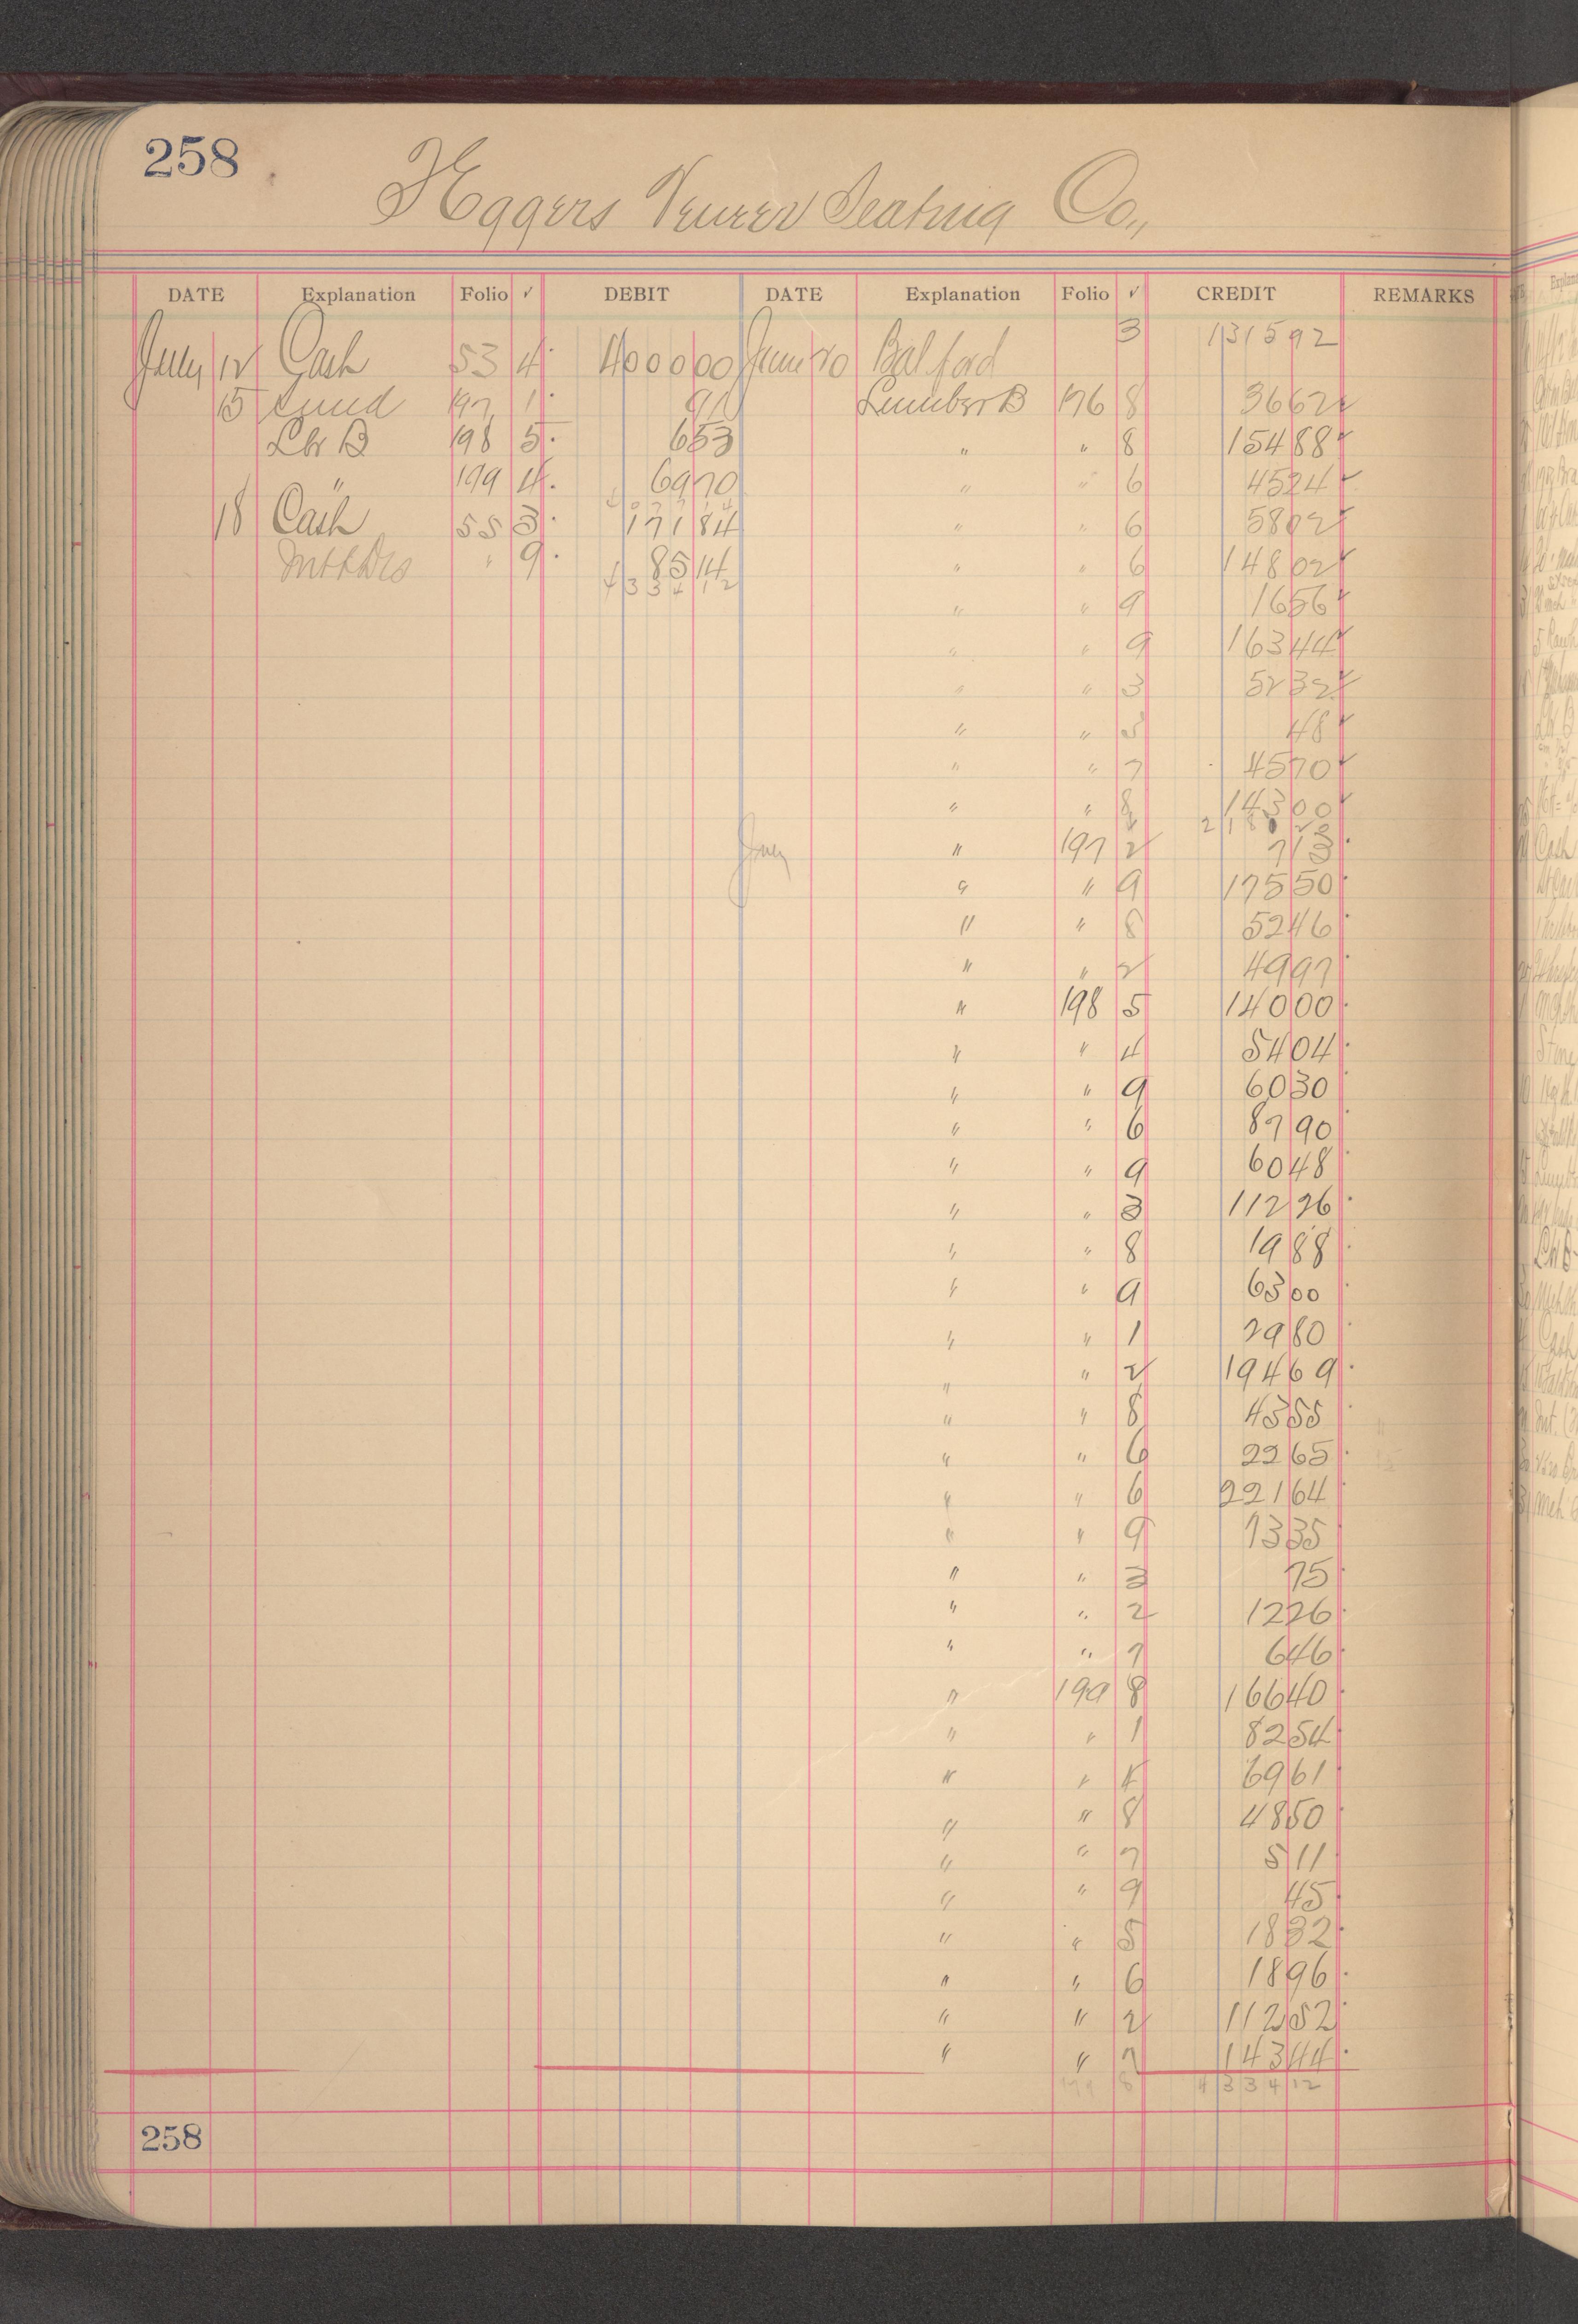 258
Eggers Veneer Seating Co.,
DATE Explanation Folio ✓ DEBIT DATE Explanation Folio ✓ CREDIT REMARKS
3 131592
July 12 Cash 53 4 400000 June 30 Bal ford
15 Sund 197 1 91 Lumber B 176 8 3662 ✓
Lbr B 198 5 653 " " 8 15488 ✓
" 199 4 6970 " " 6 4524 ✓
4 0 7 7 1 4
18 Cash 55 3 17184 " " 6 5802 ✓
Mtt & Dis " 9 8514 " " 6 14802 ✓
4 3 3 4 1 2
" " 9 1656 ✓
" " 9 16344 ✓
" " 3 5232 ✓
" " 5 48 ✓
" " 7 4570 ✓
" " 8 14300 ✓
July " 197 2 713
" " 9 17550
" " 8 5246
" " 2 4997
" 198 5 14000
" " 4 5404
" " 9 6030
" " 6 8790
" " 9 6048
" " 3 11226
" " 8 1988
" " 9 6300
" " 1 2980
" " 2 19469
" " 8 4355
" " 6 2265
" " 6 22164
" " 9 7335
" " 3 75
" " 2 1226
" " 7 646
" 199 8 16640
" " 1 8254
" " 4 6961
" " 8 4850
" " 7 511
" " 9 45
" " 5 1832
" " 6 1896
" " 2 11252
" " 7 14344
199 8 4 3 3 4 12
258